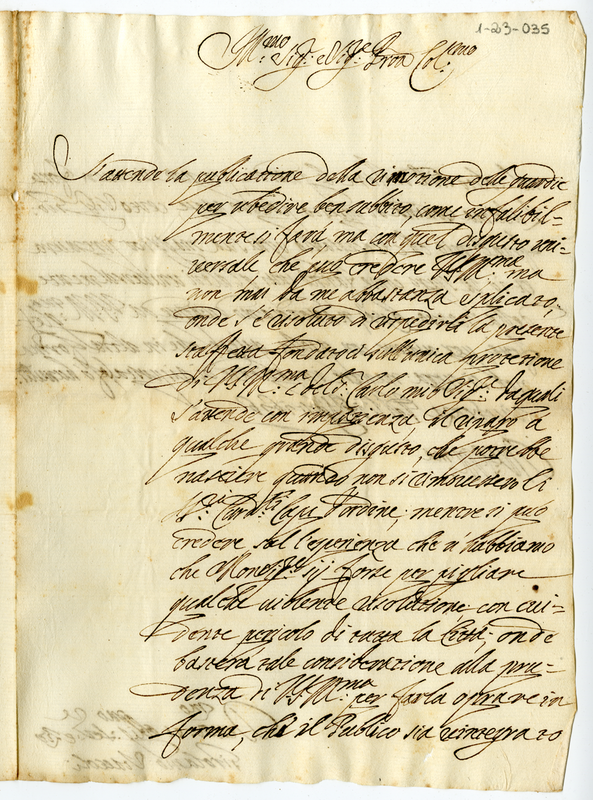 1-23-035
Ill.mo Sig.r e Sig.r Pron Col.mo
S'attende la publicatione della rimotione delle Guardie
per ubedire ben subbito, come infalibil=
mente si farà, ma con quel disgusto uni=
versale che può credere V.S. Ill.ma ma
non mai da me abbastanza esplicato,
onde s'è risoluto di rispedirli la presente
staffetta fondatoci sull'unica protettione
di V.S. Ill.ma Carlo mio Sig.r da quali
s'attende con impazienza il riparo a
qualche grande disgusto, che potrebbe
nascere quando non si rimovedero li
Capi d'ordine, mentre si può
credere sul l'esperienza che n'habbiamo
che forse per pigliare
qualche violente risolutione con evi=
dente pericolo di tutta la Città, onde
basterà tale consideratione alla pru=
denza di V.S. Ill.ma per farla oprare in
forma, che il Publico sia rintegrato